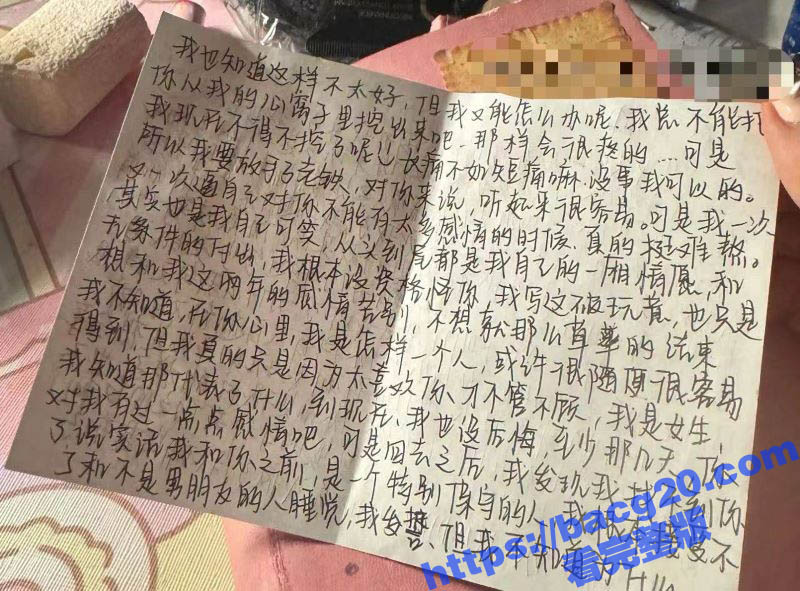 我也知道这样不太好,但我又能怎么办呢、我总不能把
你从我的心窝子里挖出来吧 那样会很疼的....可是
我现在不得不挖了呢!!长痛不如短痛嘛 没事我可以的。
所以我要放手了 对你来说,听起来很容易。可是我一次
又一次逼自己对你不能有太多感情的时候、真的挺难熬。
其实也是我自己可笑,从头到尾都是我自己的一厢情愿,和
无条件的付出 我根本没资格怪你,我写这破玩意,也只是
想和我这两年的感情告别,不想就那么草草的结束
我不知道,在你心里,我是怎样一个人,或许很随便很容易
得到 但我真的只是因为太喜欢你,才不管不顾,我是女生,
我知道那代表了什么,到现在、我也没后悔,至少那几天 你
对我有过一点点感情吧,可是回去之后,我发现我
了说实话我和你之前,是一个特别保守的人,我
了和不是男朋友的人睡觉,我发誓、但我
https://bacg20.com
看完整版